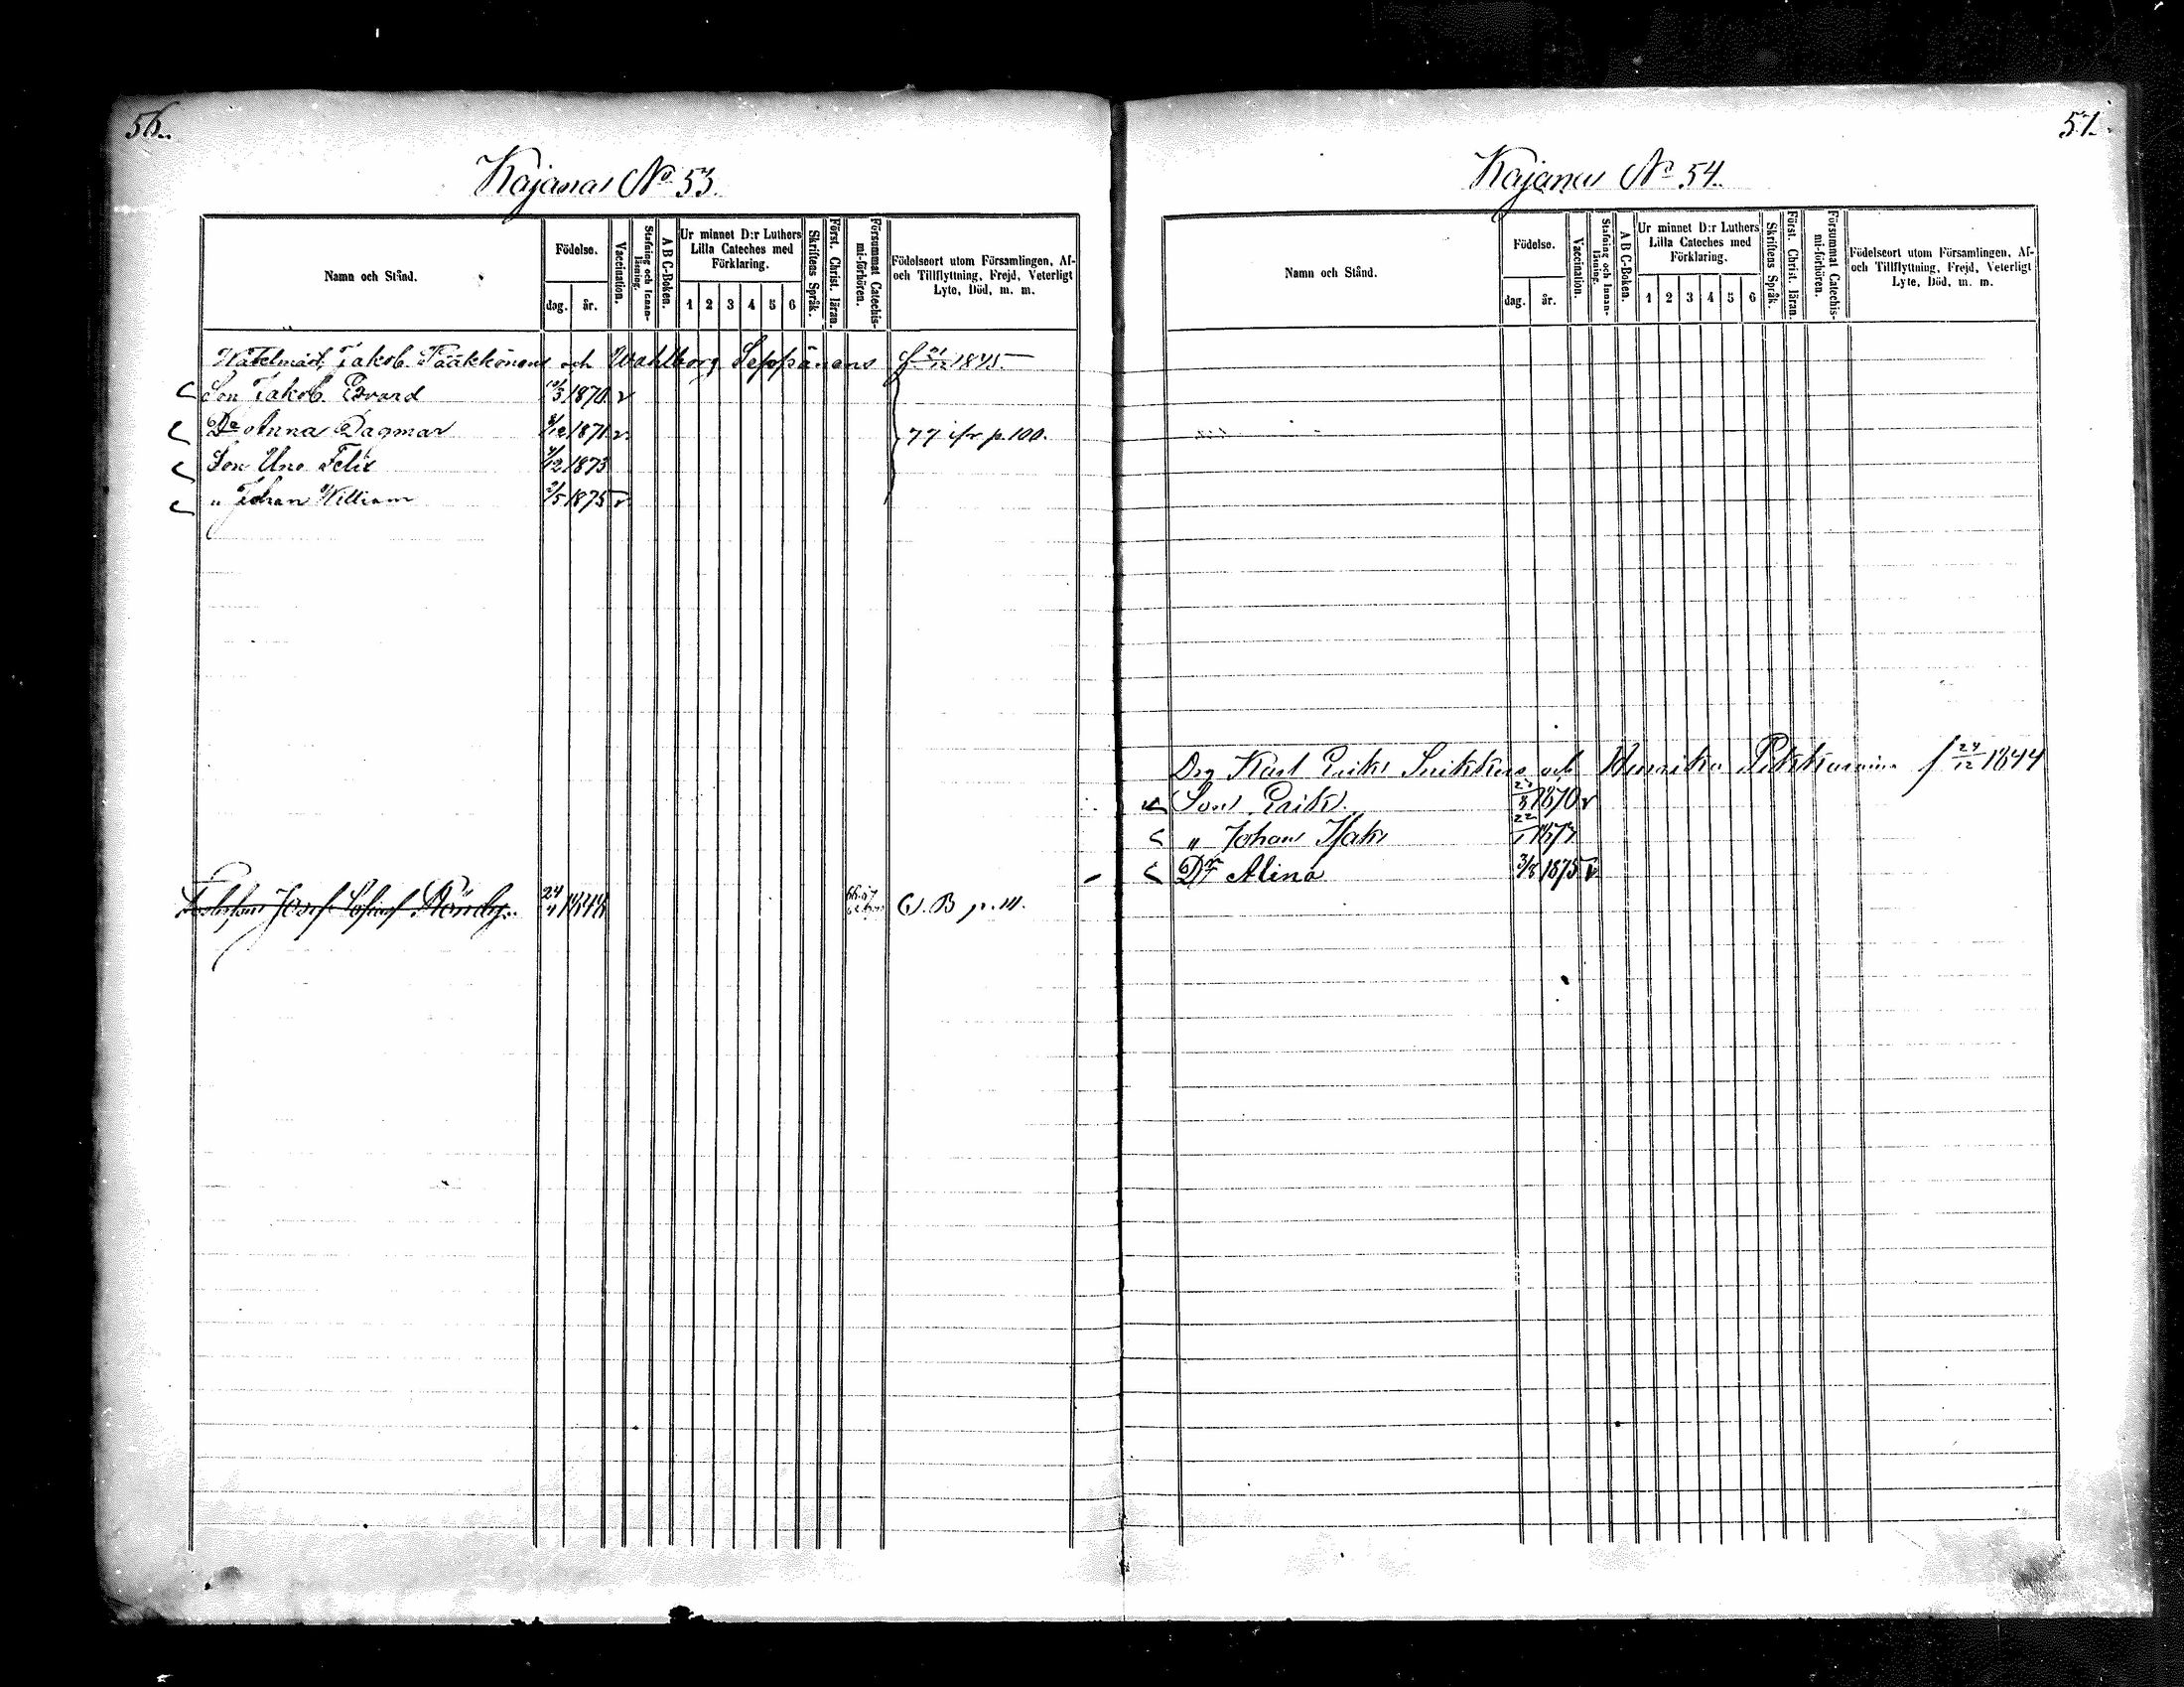 56.
Kajana No 53.
Namn och Stånd.
Födelse.
dag.
år.
Vaccination.
Stafning och Innan-läsning.
A B C-Boken.
Ur minnet D:r Luthers
Lilla Cateches med
Förklaring.
1 2 3 4 5 6
Skriftens Språk.
Först. Christ. läran.
Försummat Catechis-
mi-förhören.
Födelseort utom Församlingen, Af-
och Tillflyttning, Frejd, Veterligt
Lyte, Död, m. m.
Jakob Pääkkönens och Wahlborg Seppänens f 21/12 1845
Son Jakob Edvard 10/3 1870 v
Dr Anna Dagmar 8/12 1871 v
Son Uno Felix 4/12 1873
" Johan William 2/5 1875 v
77 ifr p. 100.
Josef 24/4 1848 C. B p. 111.
57.
Kajana No 54.
Namn och Stånd.
Födelse.
dag.
år.
Vaccination.
Stafning och Innan-läsning.
A B C-Boken.
Ur minnet D:r Luthers
Lilla Cateches med
Förklaring.
1 2 3 4 5 6
Skriftens Språk.
Först. Christ. läran.
Försummat Catechis-
mi-förhören.
Födelseort utom Församlingen, Af-
och Tillflyttning, Frejd, Veterligt
Lyte, Död, m. m.
Drg Karl Erik och Henrika f 24/12 1844
Son Erik 1870 v
" Johan Isak 22/1
Dr Alina 3/8 1875 v